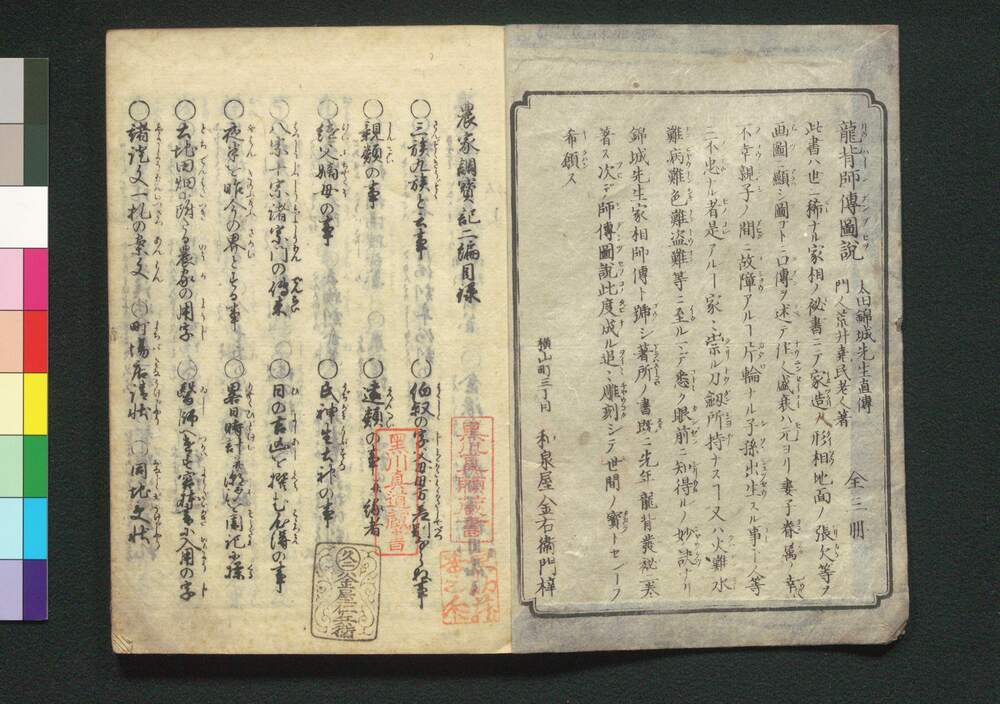 龍背師傳圖説 太田錦城先生直傳 門人荒井堯民老人著 全三冊
此書ハ世ニ稀ナル家相ノ祕書ニテ家造ノ形相地面ノ張欠等ヲ
画圖ニ顯シ圖ゴトニ口傳ヲ述ア住人盛衰ハ元ヨリ妻子眷属ノ幸
不幸親子ノ間ニ故障アルカ片輪ナル子孫出生スル事カノ等
ニ不忠ナル者是アルカ家ニ祟ル刀劔所持ナスヿ又ハ火難水
難病難色難盗難等ニ至ルマデ悉ク眼前ニ知得ルノ妙訣ナリ
錦城先生家相師傳ト號シ著所ノ書既ニ先年龍背發秘一巻
著ス次デ師傳圖説此度成ル追々彫刻シテ世間ノ寳トセンヿヲ
希願ス
横山町三丁目 和泉屋金右衛門梓
農家調寶記二編目録
○三族九族と云事
○伯叔の字父方母方差別ある事
○親類の事
○遠類の事并縁者
○継父嫡母の事
○氏神生土神の事
○八宗十宗諸宗門の傳来
○日の吉凶を撰む心得の事
○夜半を昨今の界とする事
○暑日時計
○土地田畑に附たる農家の用字
○醫師
○諸證文一札の案文
○町場店請状
○同地文状
黒川真頼蔵書
黒川真道蔵書
久二金屋仁兵衛